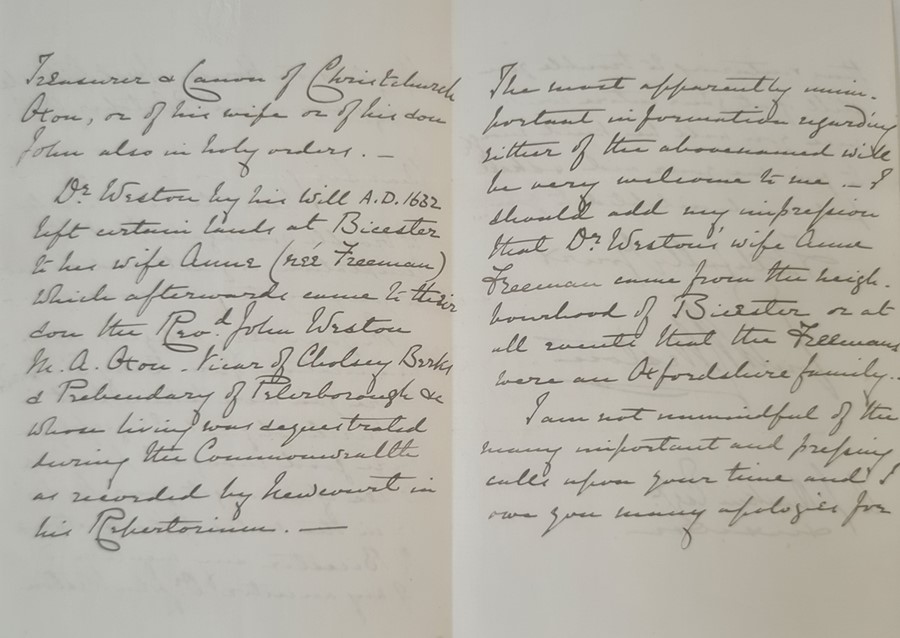 Treasurer & Canon of Christchurch
Oxon, or of his wife or of his son
John also in holy orders. —
Dr. Weston by his Will A.D. 1632
left certain lands at Bicester
to his wife Anne (neé Freeman)
which afterwards came to their
son the Revd. John Weston
M.A. Oxon. Vicar of Cholsey Berks
& Prebendary of Peterborough &c
whose living was sequestrated
during the Commonwealth
as recorded by Newcourt in
his Repertorium. —
The most apparently unim-
portant information regarding
either of the abovenamed will
be very welcome to me — I
should add my impression
that Dr. Weston's wife Anne
Freeman came from the neigh-
bourhood of Bicester or at
all events that the Freemans
were an Oxfordshire family.
I am not unmindful of the
many important and pressing
calls upon your time and I
owe you many apologies for